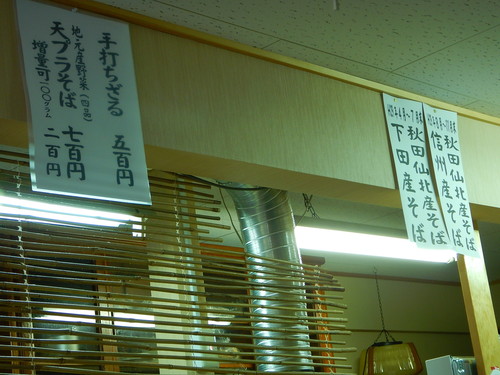 手打ちざる 五百円
地元産野菜(四品)
天プラそば 七百円
増量可一〇〇グラム 二百円
秋田仙北産そば
信州産そば
秋田仙北産そば
下田産そば